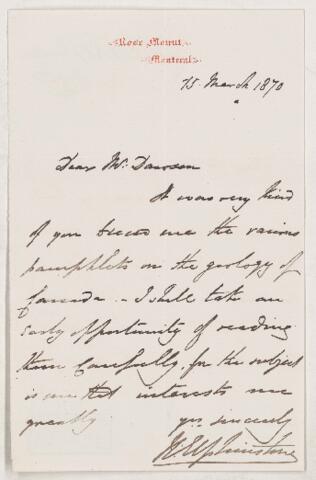 Rose Mount
Montreal
15. March 1870
Dear Mr. Dawson
It was very kind
of you to send me the various
pamphlets on the geology of
Canada. - I shall take an
early opportunity of reading
them carefully, for the subject
is one that interests me
greatly yrs sincerely